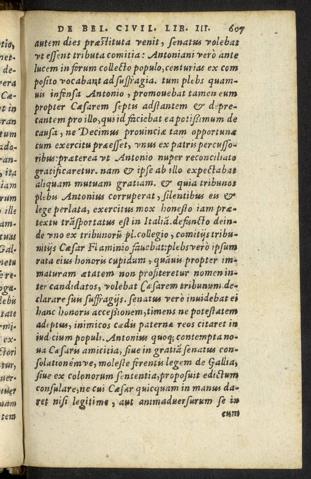 DE BEL. CIVIL. LIB. III. 607
autem dies præstituta venit, senatus volebat
vt essent tributa comitia: Antoniani verò ante
lucem in forum collecto populo, conturias ex com
posito vocabant ad suffragia. tum plebs quam-
uis infensa Antonio, promouebat tamen eum
propter Cæsarem septis adstantem & depre-
cantem pro illo, quid faciebat ea potissimum de
causa, ne Decimus prouinciæ tam opportunæ
cum exercitu præesset, vnus ex patris percusso-
ribus: præterea vt Antonio nuper reconciliato
gratificaretur. nam & ipse ab illo expectabat
aliquam mutuam gratiam. & quia tribunos
plebis Antonius corruperat, silentibus eis &
lege perlata, exercitus mox honesto iam præ-
textu trãsportatus est in Italiã. defuncto dein-
de vno ex tribunorũ pl. collegio, comitijs tribu-
nitijs Cæsar Flaminio fauebat: plebs verò ipsum
rata eius honoris cupidum, quãuis propter im-
maturam ætatem non profiteretur nomen in-
ter candidatos, volebat Cæsarem tribunum de-
clarare suis suffragijs. senatus verò inuidebat ei
hanc honoris accessionem, timens ne potestatem
adeptus, inimicos cædis paternæ reos citaret in
iudicium populi. Antonius quoq; contempta no-
ua Cæsaris amicitia, siue in gratiã senatus con-
solationémve, molestè ferentis legem de Gallia,
siue ex colonorum sententia, proposuit edictum
consulare, ne cui Cæsar quicquam in manus da-
ret nisi legitimè, aut animaduersurum se in
eum